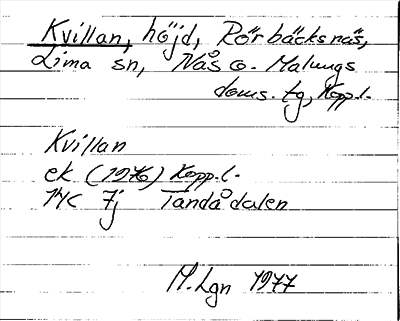 Kvillan, höjd, Rörbäcksnäs,
Lima sn, Nås o. Malungs
doms. tg, Kopp.l.
Kvillan
ek (1976) Kopp.l.
14C 7j Tandådalen
M.Lgn 1977